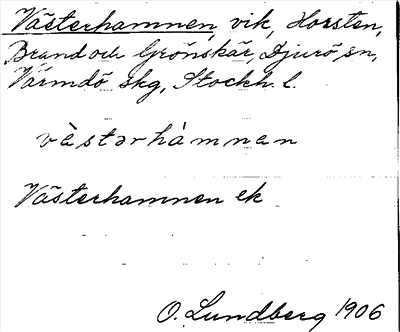 Västerhamnen, vik, Horsten,
Brand och Grönskär, Djurö sn,
Värmdö skg, Stockh. l.
västərhàmnan
Västerhamnen ek
O. Lundberg 1906